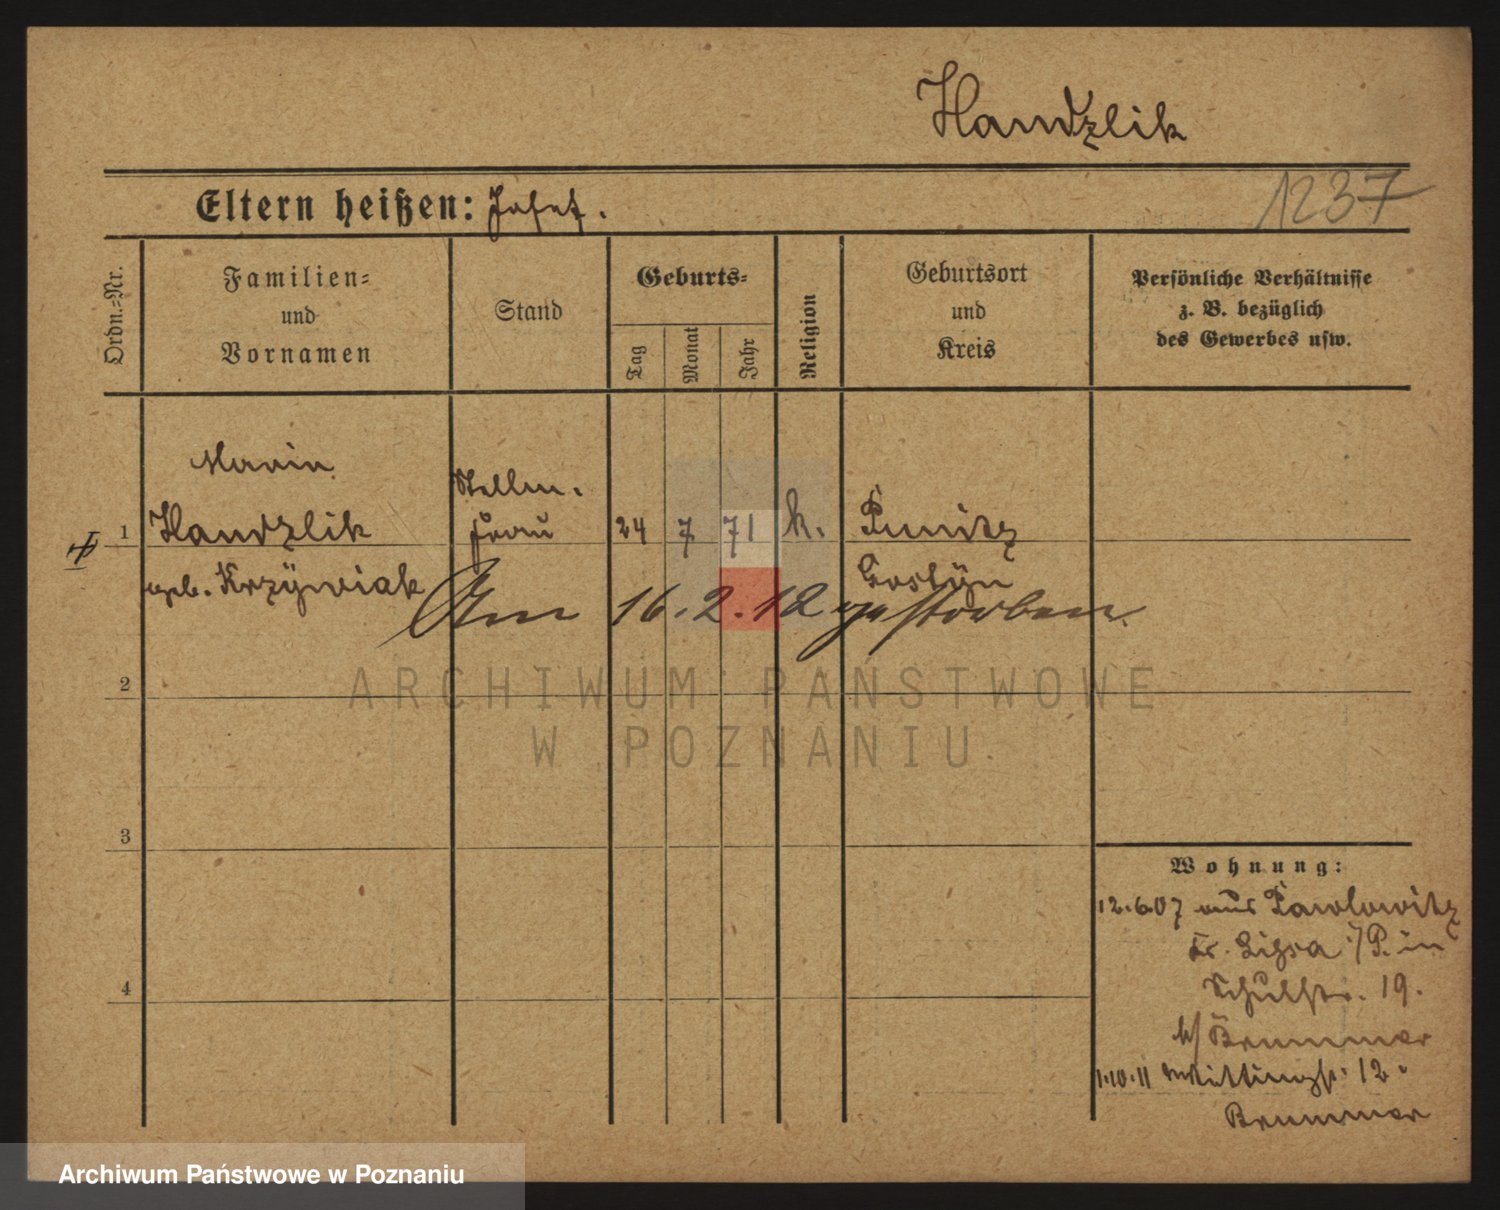 Handzlik
Eltern heißen: Josef.
1237
Ordn.-Nr.
Familien-
und
Vornamen
Stand
Geburts-
Tag
Monat
Jahr
Religion
Geburtsort
und
Kreis
Persönliche Verhältnisse
z. B. bezüglich
des Gewerbes usw.
Maria
1 Handzlik
geb. Krzÿwiak
Stellm.
frau
24 7 71 k.
Punitz
Gostÿn
Am 16.2.12 gestorben.
2
3
4
ARCHIWUM PAŃSTWOWE
W POZNANIU
Wohnung:
12.6.07 aus Pawlowitz
Kr. Lissa i/P. in
Schulstr. 19.
b/ Brummer
1.10.11 12.
Brummer
Archiwum Państwowe w Poznaniu